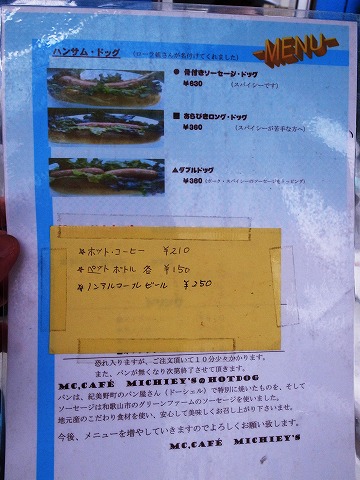 MENU
ハンサム・ドッグ
● 骨付きソーセージ・ドッグ
¥630 (スパイシーです)
■ あらびきロング・ドッグ
¥360 (スパイシーが苦手な方へ)
▲ダブルドッグ
¥360 (ポーク・スパイシーのソーセージをトッピング)
ホット・コーヒー ¥210
ペットボトル 各 ¥150
ノンアルコールビール ¥250
恐れ入りますが、ご注文頂いて10分少々かかります。
また、パンが無くなり次第終了させて頂きます。
MC,CAFÉ MICHIEY'S@HOTDOG
パンは、紀美野町のパン屋さん(ドーシェル)で特別に焼いたものを、そして
ソーセージは和歌山市のグリーンファームのソーセージを使いました。
地元産のこだわり食材を使い、安心して美味しくお召し上がり下さいませ。
今後、メニューを増やしていきますのでよろしくお願い致します。
MC,CAFÉ MICHIEY'S